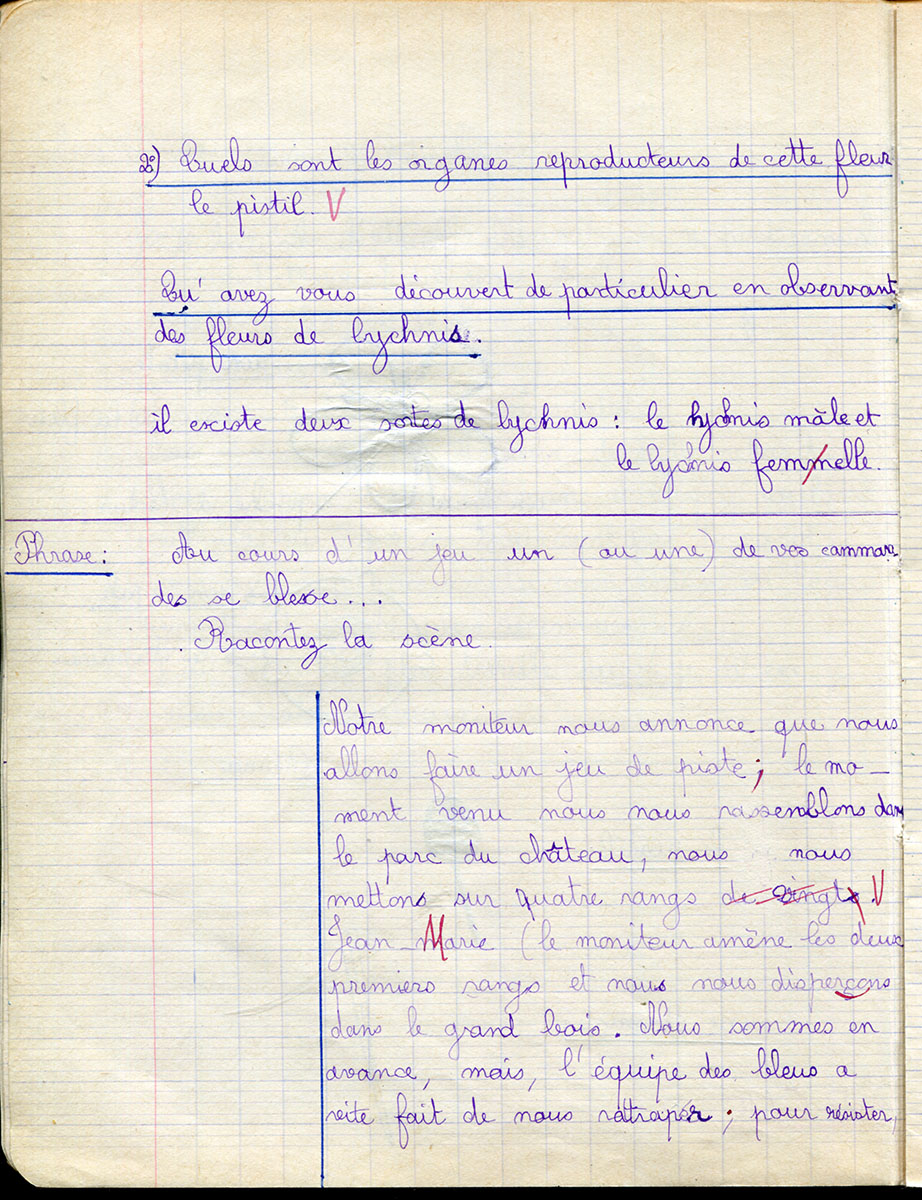 2°) Quels sont les organes reproducteurs de cette fleur
le pistil. V
Qu' avez vous découvert de particulier en observant
des fleurs de lychnis.
il existe deux sortes de lychnis : le lychnis mâle et
le lychnis femmelle.
Phrase : Au cours d'un jeu un (ou une) de vos cammara
des se blesse...
. Racontez la scène.
Notre moniteur nous annonce que nous
allons faire un jeu de piste ; le mo-
ment venu nous nous rassemblons dans
le parc du château, nous nous
mettons sur quatre rangs de vingt. V
Jean-Marie (le moniteur amène les deux
premiers rangs et nous nous disperçons
dans le grand bois. Nous sommes en
avance, mais, l'équipe des bleus a
vite fait de nous rattraper ; pour résister